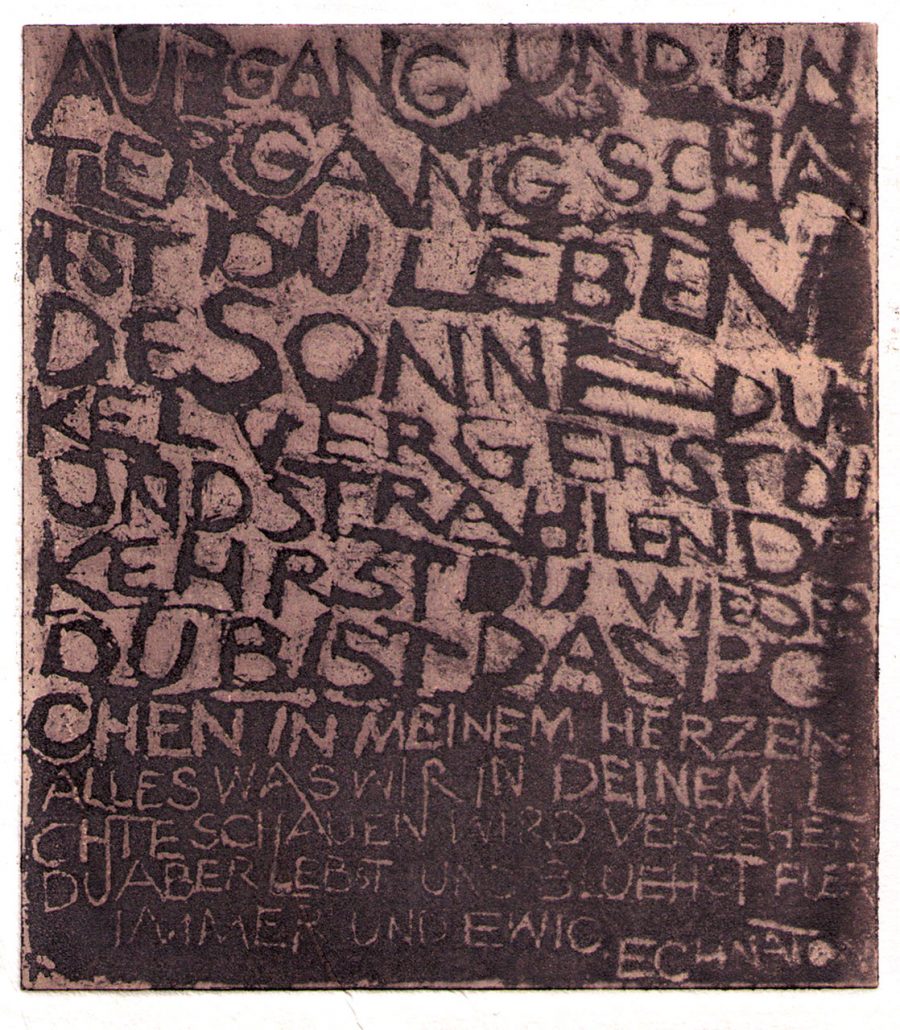 AUFGANG UND UN
TERGANG SCHA
FFST DU LEBEN
DE SONNE DU
KEL VERGEHST DU
UND STRAHLEND
KEHRST DU WIEDER
DU BIST DAS PO
CHEN IN MEINEM HERZEN
ALLES WAS WIR IN DEINEM LI
CHTE SCHAUEN WIRD VERGEHEN
DU ABER LEBST UND BLUEHST FUER
IMMER UND EWIG. ECHNATON